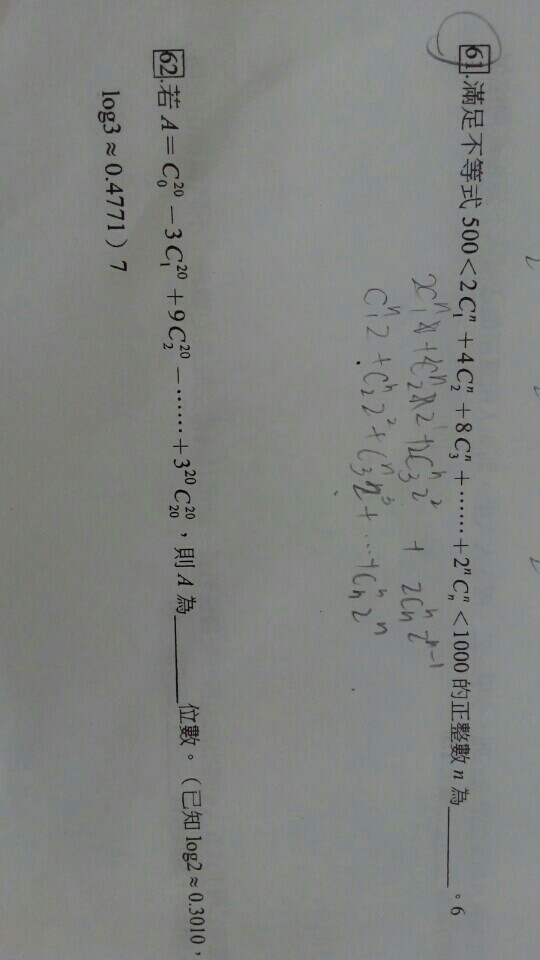 61.滿足不等式 500<2C₁ⁿ+4C₂ⁿ+8C₃ⁿ+……+2ⁿCₙⁿ<1000 的正整數 n 為______。6
C₁ⁿ2+C₂ⁿ2²+C₃ⁿ2³+…+Cₙⁿ2ⁿ
62.若 A=C₀²⁰-3C₁²⁰+9C₂²⁰-……+3²⁰C₂₀²⁰,則 A 為______位數。(已知 log2≈0.3010,
log3≈0.4771)7